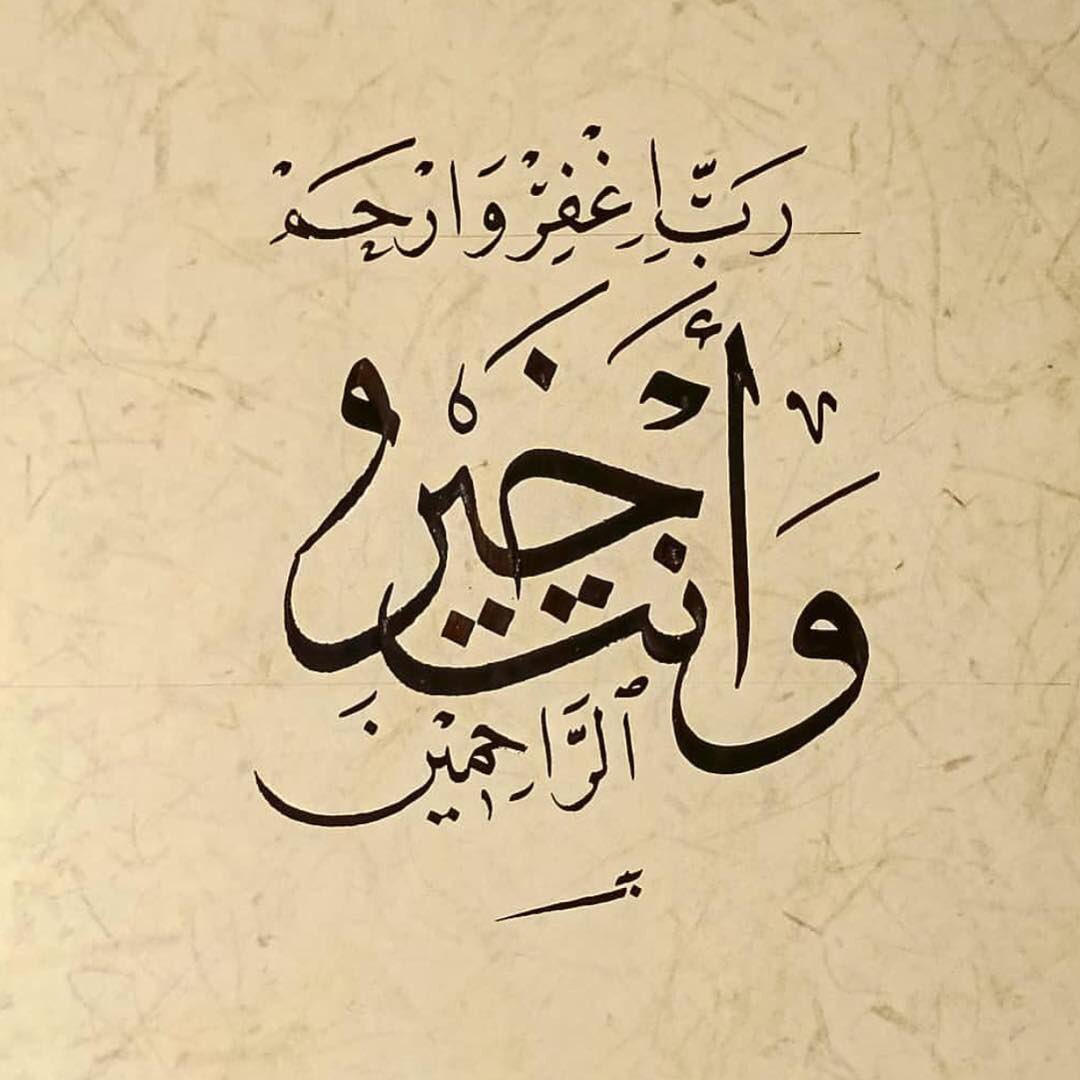 رَبِّ اِغْفِرْ وَارْحَمْ
وَأَنْتَ خَيْرُ
ٱلرَّاحِمِيْنَ